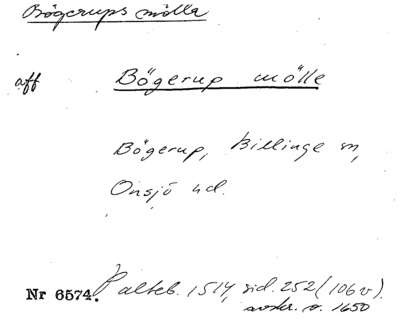 Bögerups mölla
aff Bögerup mölle
Bögerup, Billinge sn,
Onsjö hd.
Nr 6574. Palteb. 1514, sid. 252 (106 v).
avskr. o. 1650